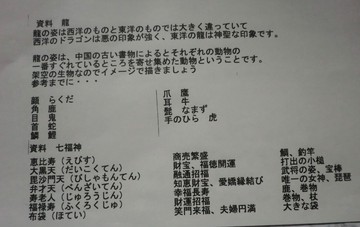 資料 龍
龍の姿は西洋のものと東洋のものでは大きく違っていて
西洋のドラゴンは悪の印象が強く、東洋の龍は神聖な印象です。
龍の姿は、中国の古い書物によるとそれぞれの動物の
一番すぐれているところを寄せ集めた動物ということです。
架空の生物なのでイメージで描きましょう
参考までに・・・
顔 らくだ
角 鹿
目 鬼
首 蛇
鱗 鯉
爪 鷹
耳 牛
髭 なまず
手のひら 虎
資料 七福神
恵比寿（えびす） 商売繁盛 鯛、釣竿
大黒天（だいこくてん） 財宝、福徳開運 打出の小槌
毘沙門天（びしゃもんてん） 融通招福 武将の姿、宝棒
弁才天（べんざいてん） 知恵財宝、愛嬌縁結び 唯一の女神、琵琶
寿老人（じゅろうじん） 幸福長寿 鹿、巻物
福禄寿（ふくろくじゅ） 財運招福 巻物、杖
布袋（ほてい） 笑門来福、夫婦円満 大きな袋